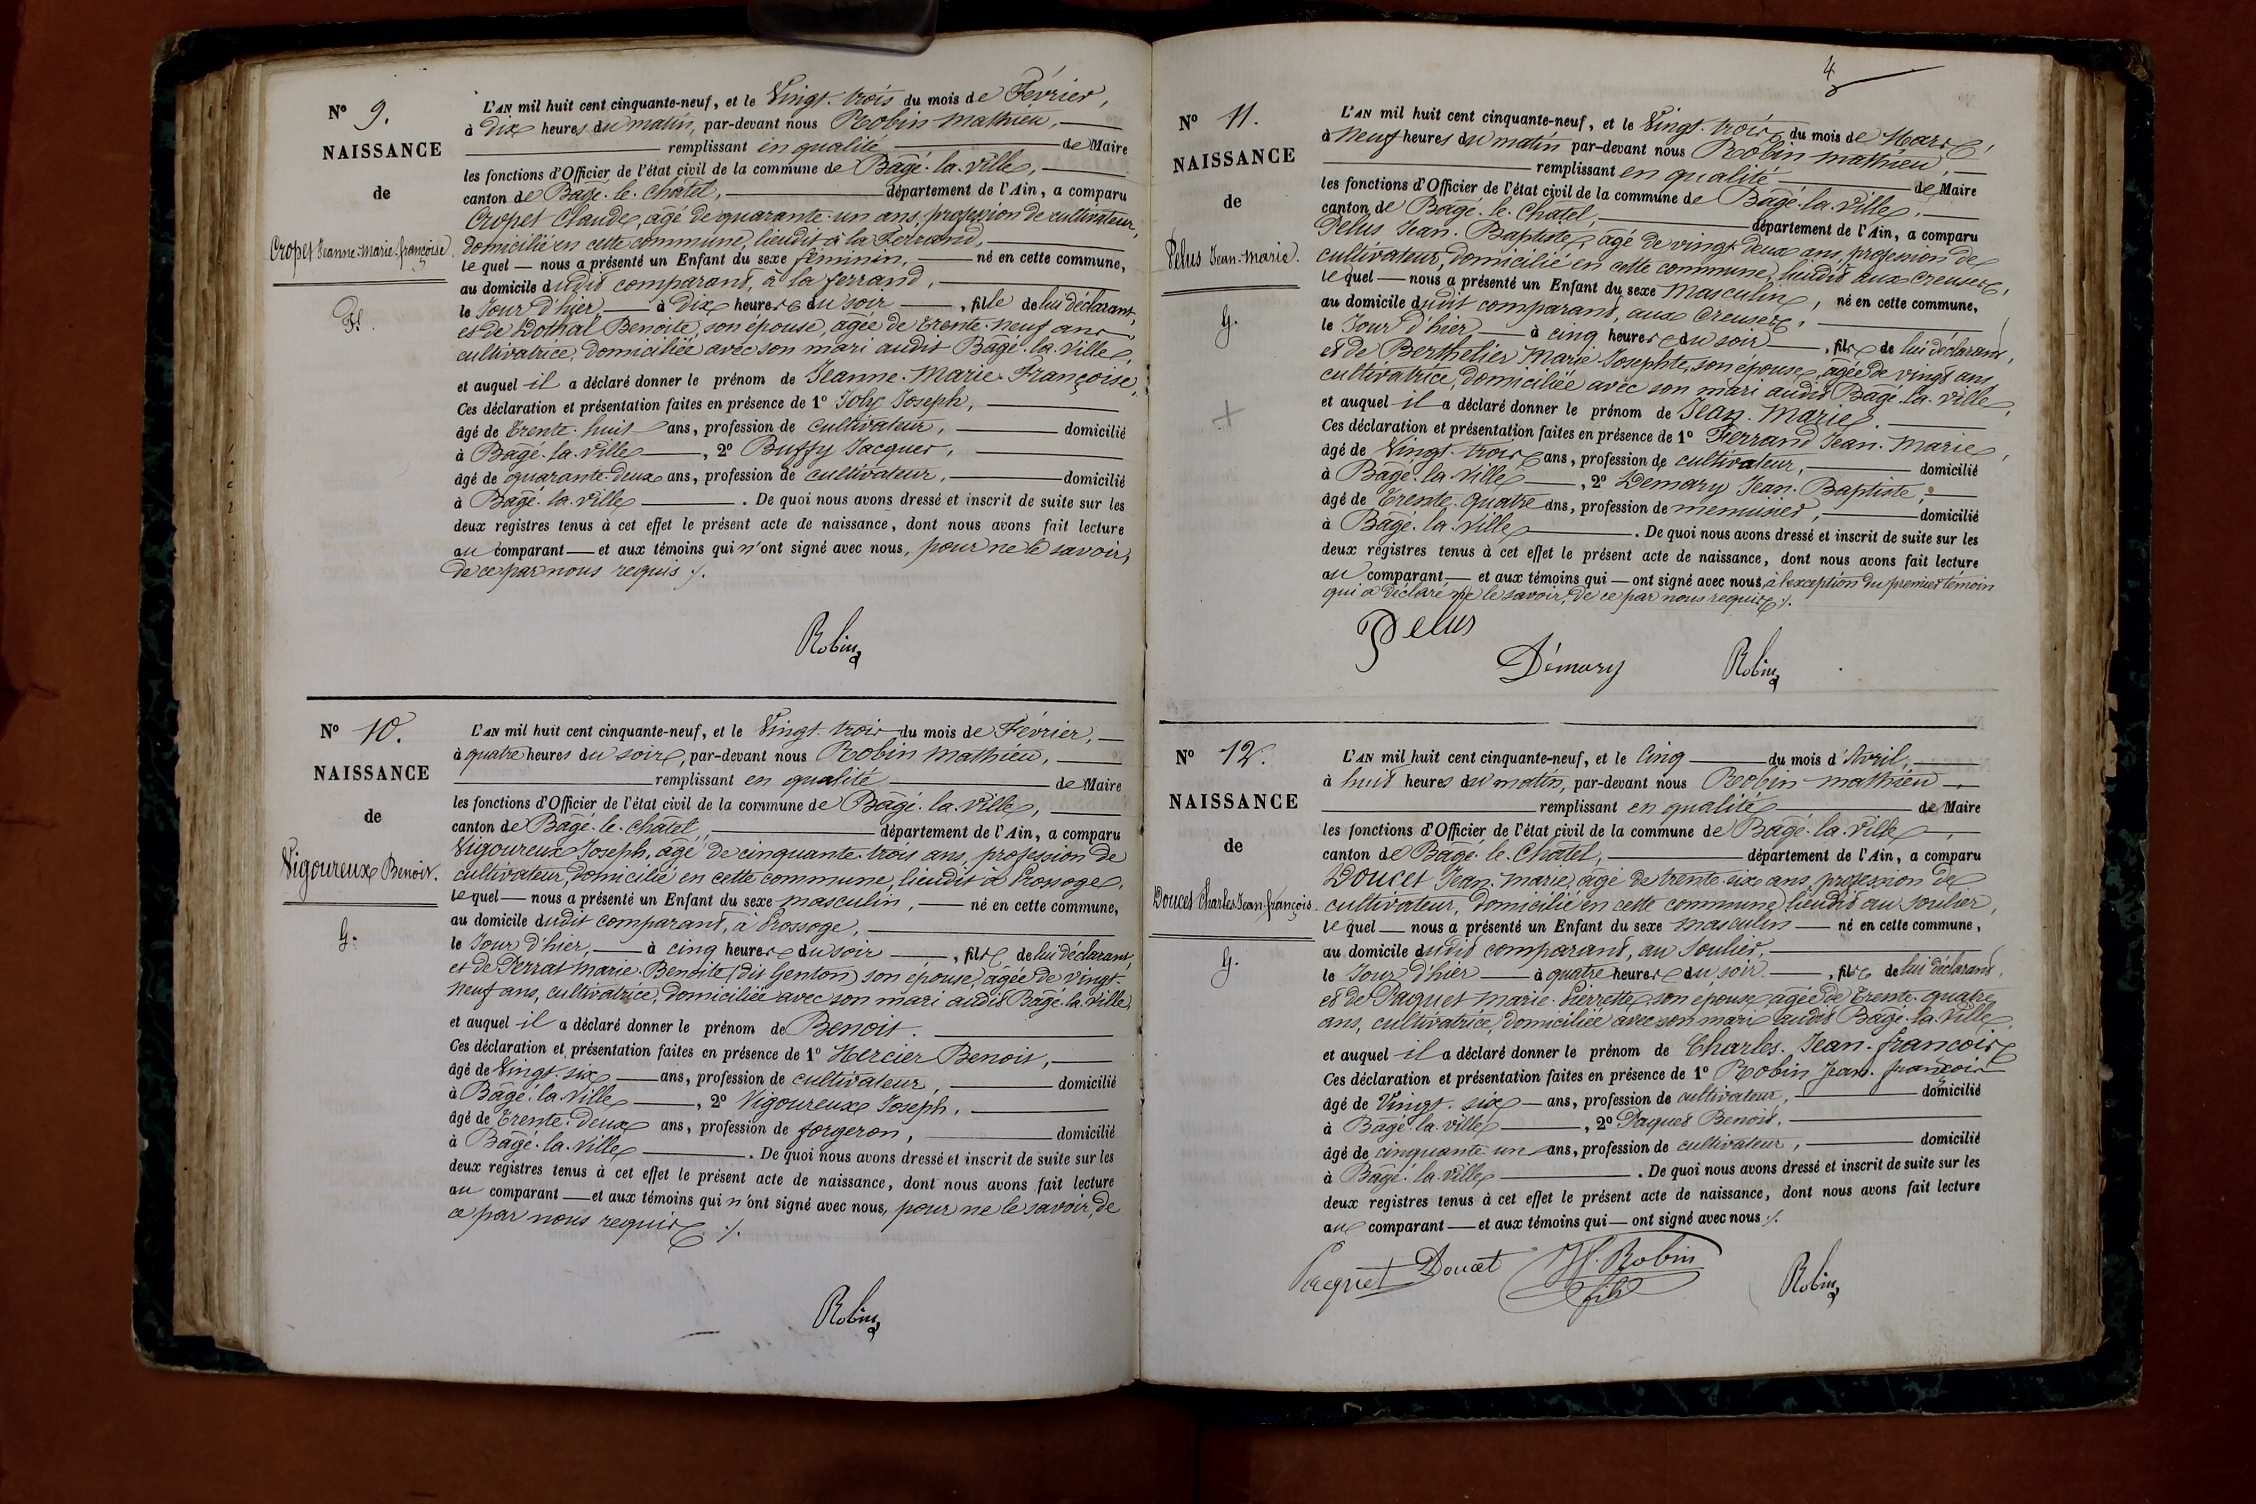 N° 9.
NAISSANCE
de
Cropet Jeanne-Marie-françoise.
F.
L'AN mil huit cent cinquante-neuf, et le Vingt-trois du mois de Février,
à Dix heures du matin, par-devant nous Robin Mathieu,
remplissant en qualité de Maire
les fonctions d'Officier de l'état civil de la commune de Bagé-la-ville,
canton de Bagé-le-Châtel, département de l'Ain, a comparu
Cropet Claude, agé de quarante-un ans, profession de cultivateur,
domicilié en cette commune, lieudit à la Ferrand,
lequel nous a présenté un Enfant du sexe féminin, né en cette commune,
au domicile dudit comparant, à la ferrand,
le Jour d'hier, à Dix heures du soir, fille de lui déclarant,
et de Dothal Benoite, son épouse, agée de trente-neuf ans
cultivatrice, domiciliée avec son mari audit Bagé-la-ville,
et auquel il a déclaré donner le prénom de Jeanne-Marie-Françoise,
Ces déclaration et présentation faites en présence de 1° Joly Joseph,
âgé de trente-huit ans, profession de cultivateur, domicilié
à Bagé-la-ville, 2° Buffy Jacques,
âgé de quarante-deux ans, profession de cultivateur, domicilié
à Bagé-la-ville. De quoi nous avons dressé et inscrit de suite sur les
deux registres tenus à cet effet le présent acte de naissance, dont nous avons fait lecture
au comparant et aux témoins qui n'ont signé avec nous, pour ne le savoir,
de ce par nous requis ./.
Robin
N° 10.
NAISSANCE
de
Vigoureux Benoit.
G.
L'AN mil huit cent cinquante-neuf, et le Vingt-trois du mois de Février,
à quatre heures du soir, par-devant nous Robin Mathieu,
remplissant en qualité de Maire
les fonctions d'Officier de l'état civil de la commune de Bagé-la-ville,
canton de Bagé-le-châtel, département de l'Ain, a comparu
Vigoureux Joseph, agé de cinquante-trois ans, profession de
cultivateur, domicilié en cette commune, lieudit à Crossoge,
lequel nous a présenté un Enfant du sexe masculin, né en cette commune,
au domicile dudit comparant, à Crossoge,
le Jour d'hier, à cinq heures du soir, fils de lui déclarant,
et de Perrat Marie-Benoite (dit Genton) son épouse, agée de vingt-
neuf ans, cultivatrice, domiciliée avec son mari audit Bagé-la-ville,
et auquel il a déclaré donner le prénom de Benoit.
Ces déclaration et présentation faites en présence de 1° Mercier Benoit,
âgé de Vingt-six ans, profession de cultivateur, domicilié
à Bagé-la-ville, 2° Vigoureux Joseph,
âgé de trente-deux ans, profession de forgeron, domicilié
à Bagé-la-Ville. De quoi nous avons dressé et inscrit de suite sur les
deux registres tenus à cet effet le présent acte de naissance, dont nous avons fait lecture
au comparant et aux témoins qui n'ont signé avec nous, pour ne le savoir, de
ce par nous requis ./.
Robin
4
N° 11.
NAISSANCE
de
Pelus Jean-Marie.
G.
L'AN mil huit cent cinquante-neuf, et le Vingt-trois du mois de Mars,
à Neuf heures du matin par-devant nous Robin Mathieu,
remplissant en qualité de Maire
les fonctions d'Officier de l'état civil de la commune de Bagé-la-Ville,
canton de Bagé-le-Châtel, département de l'Ain, a comparu
Pelus Jean-Baptiste, agé de vingt-deux ans, profession de
cultivateur, domicilié en cette commune, lieudit aux Creuses,
lequel nous a présenté un Enfant du sexe Masculin, né en cette commune,
au domicile dudit comparant, aux Creuses,
le Jour d'hier à cinq heures du soir, fils de lui déclarant,
et de Berthelier Marie Josephte, son épouse, agée de vingt ans,
cultivatrice, domiciliée avec son mari audit Bagé-la-ville,
et auquel il a déclaré donner le prénom de Jean-Marie.
Ces déclaration et présentation faites en présence de 1° Ferrand Jean-Marie,
âgé de Vingt-trois ans, profession de cultivateur, domicilié
à Bagé-la-Ville, 2° Demary Jean-Baptiste,
âgé de trente-quatre ans, profession de menuisier, domicilié
à Bagé-la-Ville. De quoi nous avons dressé et inscrit de suite sur les
deux registres tenus à cet effet le présent acte de naissance, dont nous avons fait lecture
au comparant et aux témoins qui ont signé avec nous, à l'exception du premier témoin
qui a déclaré ne le savoir, de ce par nous requis ./.
Pelus
Démary Robin
N° 12.
NAISSANCE
de
Doucet Charles Jean-françois.
G.
L'AN mil huit cent cinquante-neuf, et le Cinq du mois d'Avril,
à huit heures du matin, par-devant nous Robin Mathieu
remplissant en qualité de Maire
les fonctions d'Officier de l'état civil de la commune de Bagé-la-ville,
canton de Bagé-le-Châtel, département de l'Ain, a comparu
Doucet Jean-Marie, agé de trente-six ans, profession de
cultivateur, domicilié en cette commune, lieudit au Soulier,
lequel nous a présenté un Enfant du sexe masculin né en cette commune,
au domicile dudit comparant, au Soulier,
le Jour d'hier à quatre heures du soir, fils de lui déclarant,
et de Paquet Marie-Pierrette, son épouse, agée de trente-quatre
ans, cultivatrice, domiciliée avec son mari audit Bagé-la-Ville,
et auquel il a déclaré donner le prénom de Charles-Jean-françois
Ces déclaration et présentation faites en présence de 1° Robin Jean-françois
âgé de Vingt-six ans, profession de cultivateur, domicilié
à Bagé-la-ville, 2° Paquet Benoit,
âgé de cinquante-un ans, profession de cultivateur, domicilié
à Bagé-la-ville. De quoi nous avons dressé et inscrit de suite sur les
deux registres tenus à cet effet le présent acte de naissance, dont nous avons fait lecture
au comparant et aux témoins qui ont signé avec nous ./.
Pacquet Doucet Robin fils Robin